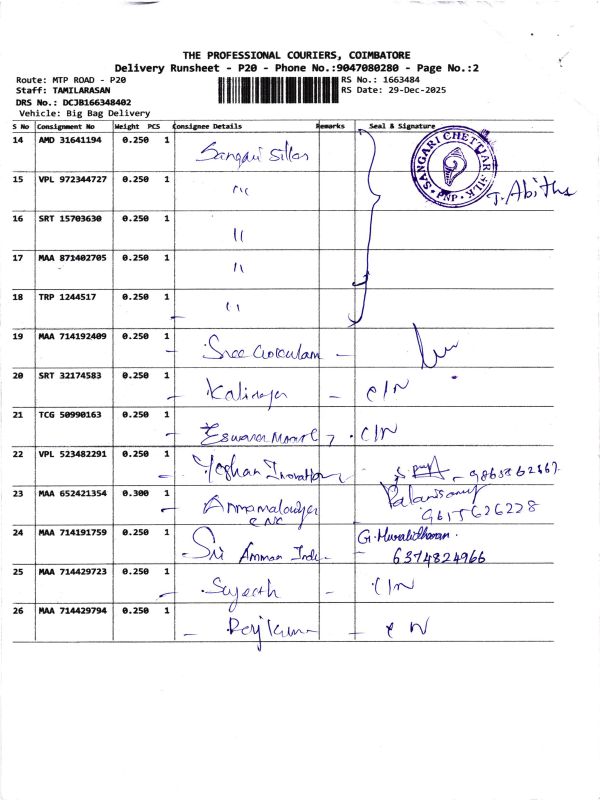 THE PROFESSIONAL COURIERS, COIMBATORE
Delivery Runsheet - P20 - Phone No.:9047080280 - Page No.:2
Route: MTP ROAD - P20
RS No.: 1663484
Staff: TAMILARASAN
RS Date: 29-Dec-2025
DRS No.: DCJB166348402
Vehicle: Big Bag Delivery
S No Consignment No Weight PCS Consignee Details Remarks Seal & Signature
14 AMD 31641194 0.250 1 Sangari Silks
SANGARI CHETTIAR SILK PNP
J. Abitha
15 VPL 972344727 0.250 1 "
16 SRT 15703630 0.250 1 "
17 MAA 871402705 0.250 1 "
18 TRP 1244517 0.250 1 "
19 MAA 714192409 0.250 1 Sree
20 SRT 32174583 0.250 1 C/N
21 TCG 50990163 0.250 1 C/N
22 VPL 523482291 0.250 1
23 MAA 652421354 0.300 1 CNC 9615626228
24 MAA 714191759 0.250 1 Sri Amman Inds G. Muralidharan. 6374824966
25 MAA 714429723 0.250 1 Sujeeth C/N
26 MAA 714429794 0.250 1 Rajkumar C N